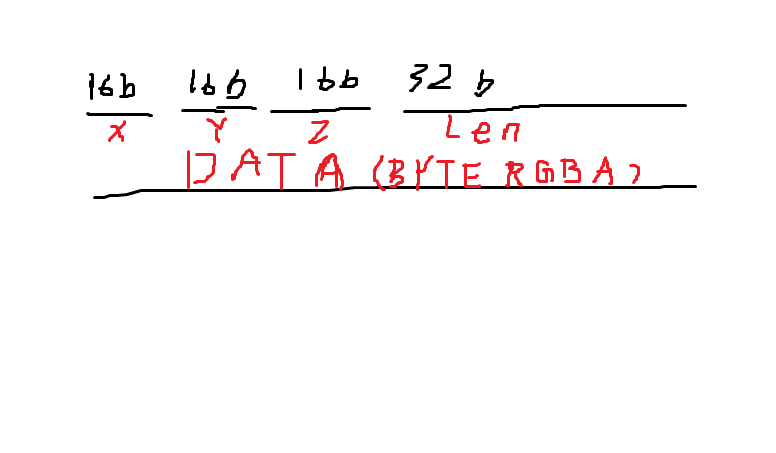 16b 16b 16b 32 b
X Y Z Len
DATA (BYTE RGBA)